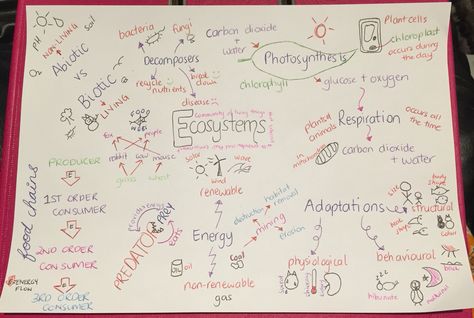 PH
NON LIVING
Soil
O₂
Abiotic
vs
Biotic
LIVING
bacteria
fungi
Decomposers
recycle
nutrients
break
down
disease
carbon dioxide
+
water
Photosynthesis
chlorophyll
glucose + oxygen
Plant cells
chloroplast
occurs during
the day
FOOD
WEB
fox
people
rabbit
cow
mouse
grass
wheat
community of living things
Ecosystems
plants +
animals
Respiration
occurs all
the time
in mitochondria
carbon dioxide
+ water
food chains
PRODUCER
E
1ST ORDER
CONSUMER
E
2ND ORDER
CONSUMER
E
3RD ORDER
CONSUMER
E ENERGY
FLOW
PREDATOR
PREY
eats
solar
wave
wind
renewable
Energy
oil
coal
non-renewable
gas
destruction
habitat
removal
mining
erosion
Adaptations
structural
size
body
shape
colour
physiological
behavioural
hibernate
nocturnal